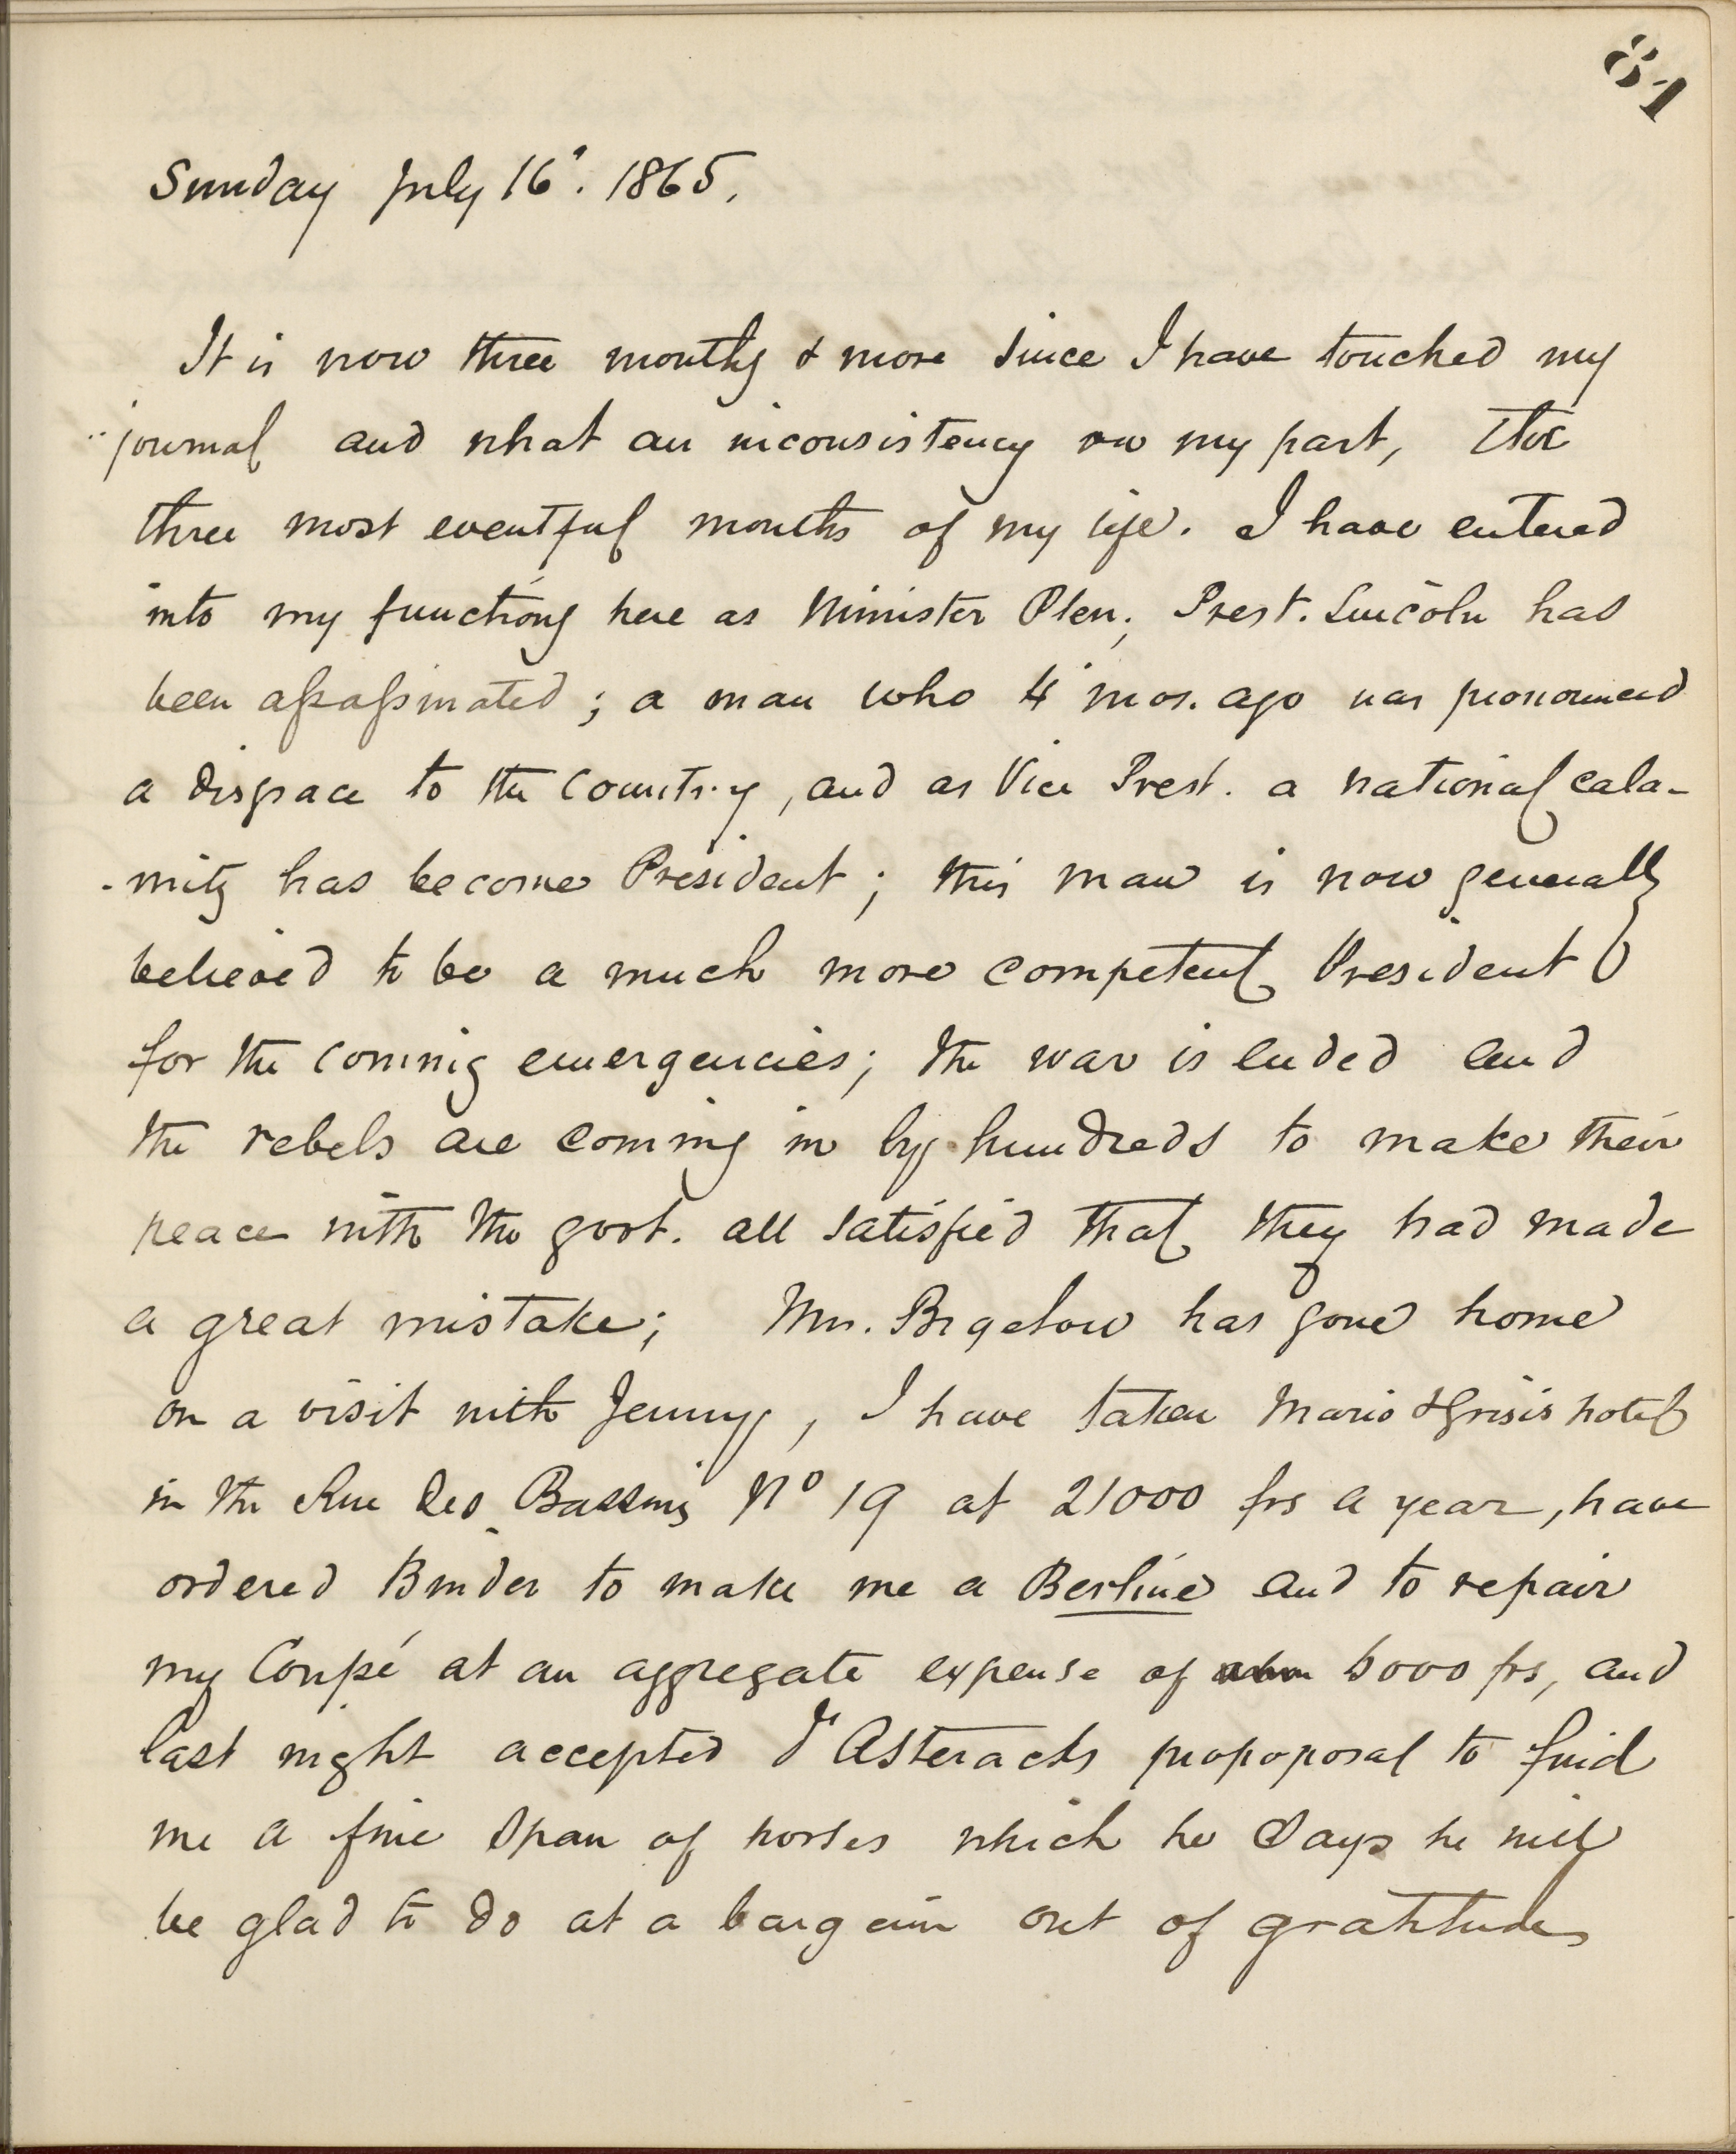 81
Sunday July 16'. 1865.
It is now three months & more since I have touched my
journal and what an inconsistency on my part, the
three most eventful months of my life. I have entered
into my functions here as Minister Plen; Prest. Lincoln has
been assassinated; a man who 4 mos. ago was pronounced
a disgrace to the Country, and as Vice Prest. a national cala-
-mity has become President; this man is now generally
believed to be a much more competent President
for the coming emergencies; the war is ended and
the rebels are coming in by hundreds to make their
peace with the govt. all satisfied that they had made
a great mistake; Mrs. Bigelow has gone home
on a visit with Jenny, I have taken Mario & Grisis hotel
in the Rue des Bassins No 19 at 21000 frs a year, have
ordered Binder to make me a Berline and to repair
my Coupé at an aggregate expense of 6000 frs, and
last night accepted d'Asteracks propoposal to find
me a fine span of horses which he says he will
be glad to do at a bargain out of gratitude